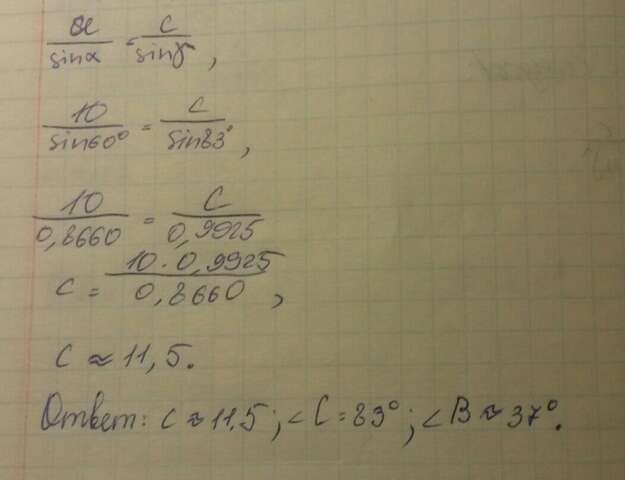 a/sinα = c/sinγ,
10/sin60° = c/sin83°,
10/0,8660 = c/0,9925
c = 10·0,9925/0,8660,
c ≈ 11,5.
Ответ: c ≈ 11,5; ∠C = 83°; ∠B ≈ 37°.